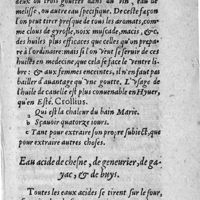 deux ou trois gouttes dans du vin, eau de
melisse, ou autre eau specifique. De ceste façon
l'on peut tirer presque de tous les aromats, com-
me clous de gyrofle, noix muscade, macis, &c.
des huiles plus efficaces que celles qu'on prepa-
re à l'ordinaire: mais il se faut servir de ses
huiles en medecine, que cela se fasse le ventre li-
bre: & aux femmes enceintes, il n'en faut pas
bailler d'avantage qu'une goutte. L'usage de
l'huile de canelle est plus convenable en Hyuer,
qu'en Esté. Crollius.
a Qui est la chaleur du bain Marie.
b Sçauoir quatorze iours.
c Tant pour extraire son propre subiect, que
pour extraire autres choses.
Eau acide de chesne, de geneurier, de ga-
yac, & de buys.
Toutes les eaux acides se tirent sur le four,